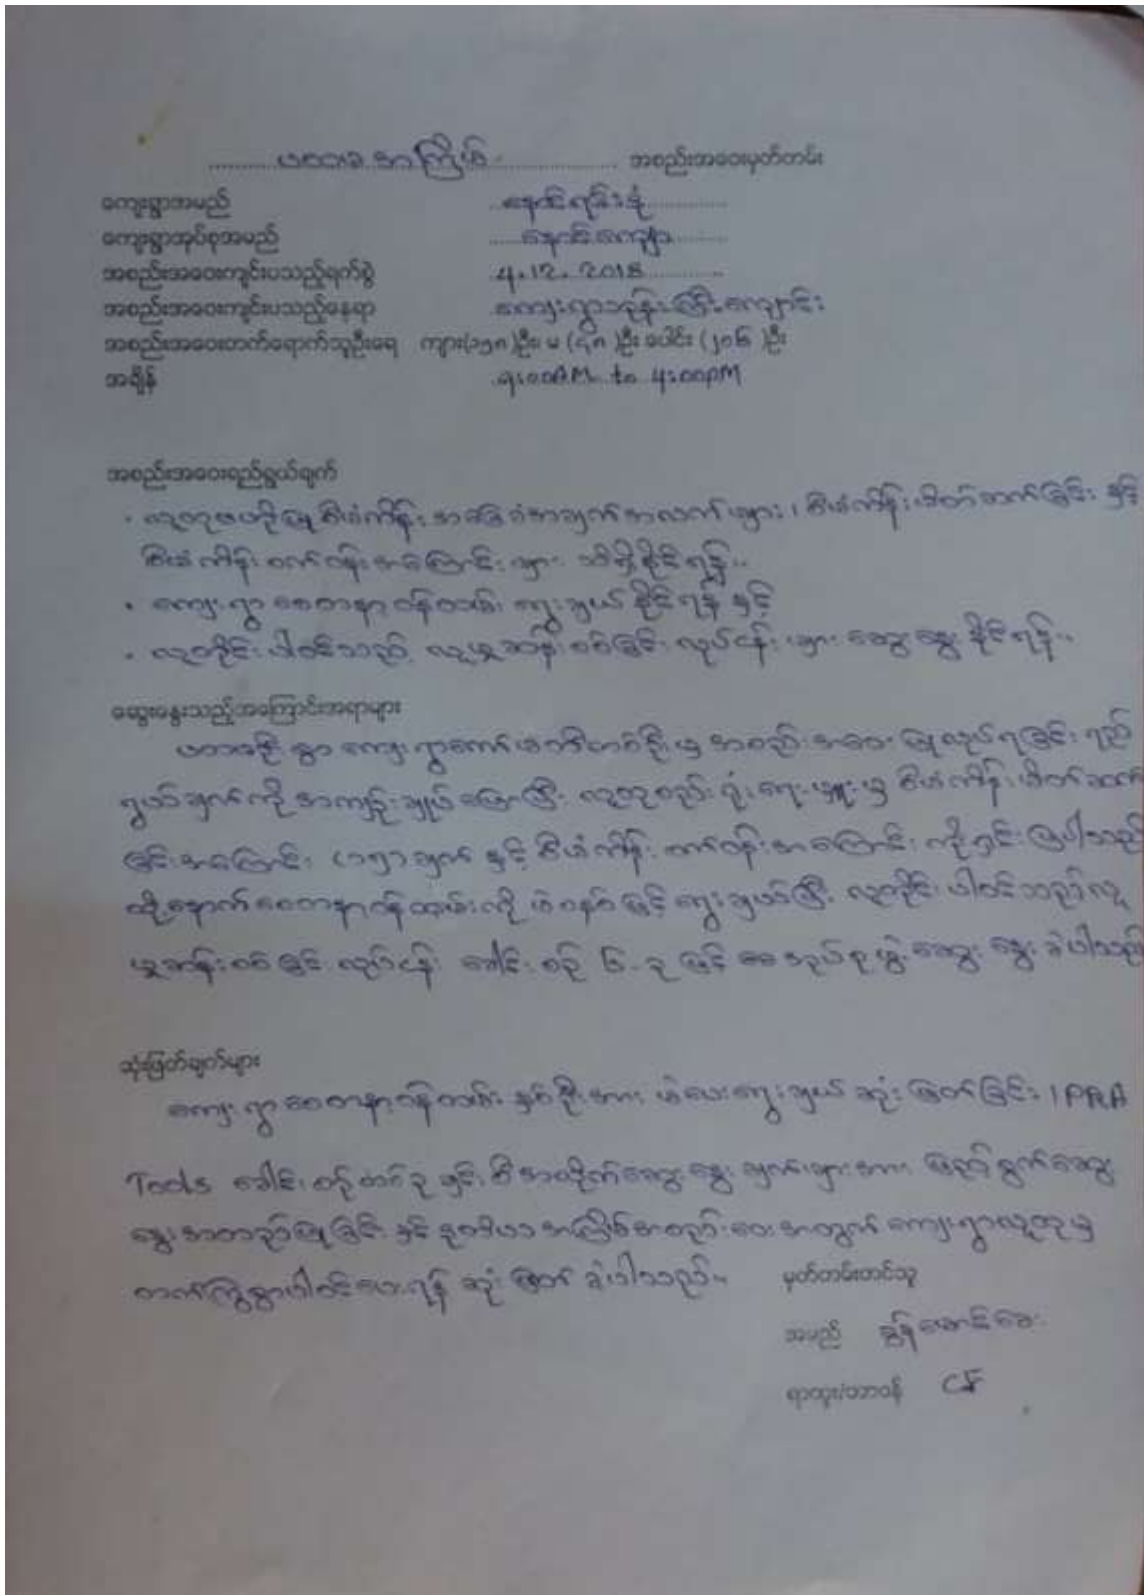 ပထမ အကြိမ် အစည်းအဝေးမှတ်တမ်း
ကျေးရွာအမည် နောင်ရမ်းနုံ
ကျေးရွာအုပ်စုအမည် နောင်ကျော
အစည်းအဝေးကျင်းပသည့်ရက်စွဲ 4.12.2018
အစည်းအဝေးကျင်းပသည့်နေရာ ကျေးရွာဘုန်းကြီးကျောင်း
အစည်းအဝေးတက်ရောက်သူဦးရေ ကျား(၁၅၈)ဦး၊ မ (၄၈)ဦး ပေါင်း (၂၀၆)ဦး
အချိန် 9:00AM to 4:00PM
အစည်းအဝေးရည်ရွယ်ချက်
• လူထုဗဟိုပြုစီမံကိန်း အခြေခံအချက်အလက်များ၊ စီမံကိန်းမိတ်ဆက်ခြင်း နှင့်
စီမံကိန်း စက်ဝန်းအကြောင်းများ သိရှိနိုင်ရန်။
• ကျေးရွာ စေတနာ့ဝန်ထမ်း ရွေးချယ်နိုင်ရန် နှင့်
• လူတိုင်းပါဝင်သည့် လူမှုဆန်းစစ်ခြင်း လုပ်ငန်းများ ဆွေးနွေးနိုင်ရန်။
ဆွေးနွေးသည့်အကြောင်းအရာများ
ပထမဦးစွာ ကျေးရွာကော်မတီတစ်ဦးမှ အစည်းအဝေးပြုလုပ်ရခြင်း ရည်
ရွယ်ချက်ကို အကျဉ်းချုပ်ပြောပြီး လူထုစည်းရုံးရေးမှူးမှ စီမံကိန်း မိတ်ဆက်
ခြင်းအကြောင်း (၁၅)ချက် နှင့် စီမံကိန်း စက်ဝန်းအကြောင်း ကိုရှင်းပြပါသည်
ထို့နောက်စေတနာ့ဝန်ထမ်းကို မဲစနစ်ဖြင့် ရွေးချယ်ပြီး လူတိုင်းပါဝင်သည့်လူ
မှုဆန်းစစ်ခြင်း လုပ်ငန်း ခေါင်းစဉ် ၆ ခု ဖြင့် အုပ်စုဖွဲ့ဆွေးနွေးခဲ့ပါသည်
ဆုံးဖြတ်ချက်များ
ကျေးရွာစေတနာ့ဝန်ထမ်း နှစ်ဦးအား မဲပေးရွေးချယ် ဆုံးဖြတ်ခြင်း၊ PRA
Tools ခေါင်းစဉ်တစ်ခုချင်းစီအလိုက်ဆွေးနွေးချက်များအား ဖြည့်စွက်ဆွေး
နွေးအတည်ပြုခြင်း နှင့် ဒုတိယအကြိမ်အစည်းအဝေးအတွက် ကျေးရွာလူထုမှ
တက်ကြွစွာပါဝင်ပေးရန် ဆုံးဖြတ်ခဲ့ပါသည်။
မှတ်တမ်းတင်သူ
အမည် ခွန်အောင်ဆေး
ရာထူး/တာဝန် CF